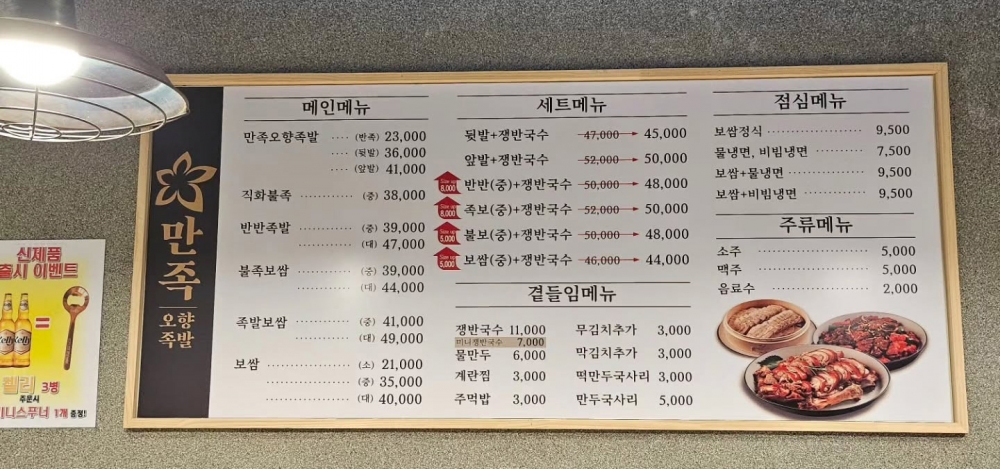 만족
오향
족발
메인메뉴
만족오향족발 ···· (반족) 23,000
··· (뒷발) 36,000
··· (앞발) 41,000
직화불족 ············ (중) 38,000
반반족발 ············ (중) 39,000
(대) 47,000
불족보쌈 ············ (중) 39,000
(대) 44,000
족발보쌈 ············ (중) 41,000
(대) 49,000
보쌈 ············ (소) 21,000
(중) 35,000
(대) 40,000
세트메뉴
뒷발+쟁반국수 47,000 → 45,000
앞발+쟁반국수 52,000 → 50,000
Size up 8,000 반반(중)+쟁반국수 50,000 → 48,000
Size up 8,000 족보(중)+쟁반국수 52,000 → 50,000
Size up 5,000 불보(중)+쟁반국수 50,000 → 48,000
Size up 5,000 보쌈(중)+쟁반국수 46,000 → 44,000
곁들임메뉴
쟁반국수 11,000
미니쟁반국수 7,000
물만두 6,000
계란찜 3,000
주먹밥 3,000
무김치추가 3,000
막김치추가 3,000
떡만두국사리 3,000
만두국사리 5,000
점심메뉴
보쌈정식 ············ 9,500
물냉면, 비빔냉면 ············ 7,500
보쌈+물냉면 ············ 9,500
보쌈+비빔냉면 ············ 9,500
주류메뉴
소주 ············ 5,000
맥주 ············ 5,000
음료수 ············ 2,000
신제품
출시 이벤트
Kelly
=
켈리 3병
주문시
미니스푸너 1개 증정!